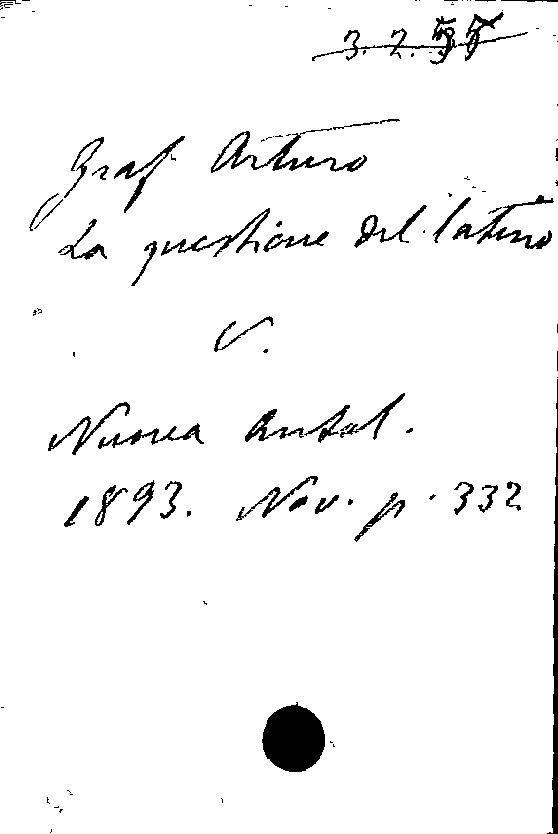 3.2.
Graf Arturo
La questione del latino
V.
Nuova Antol.
1893. Nov. p. 332